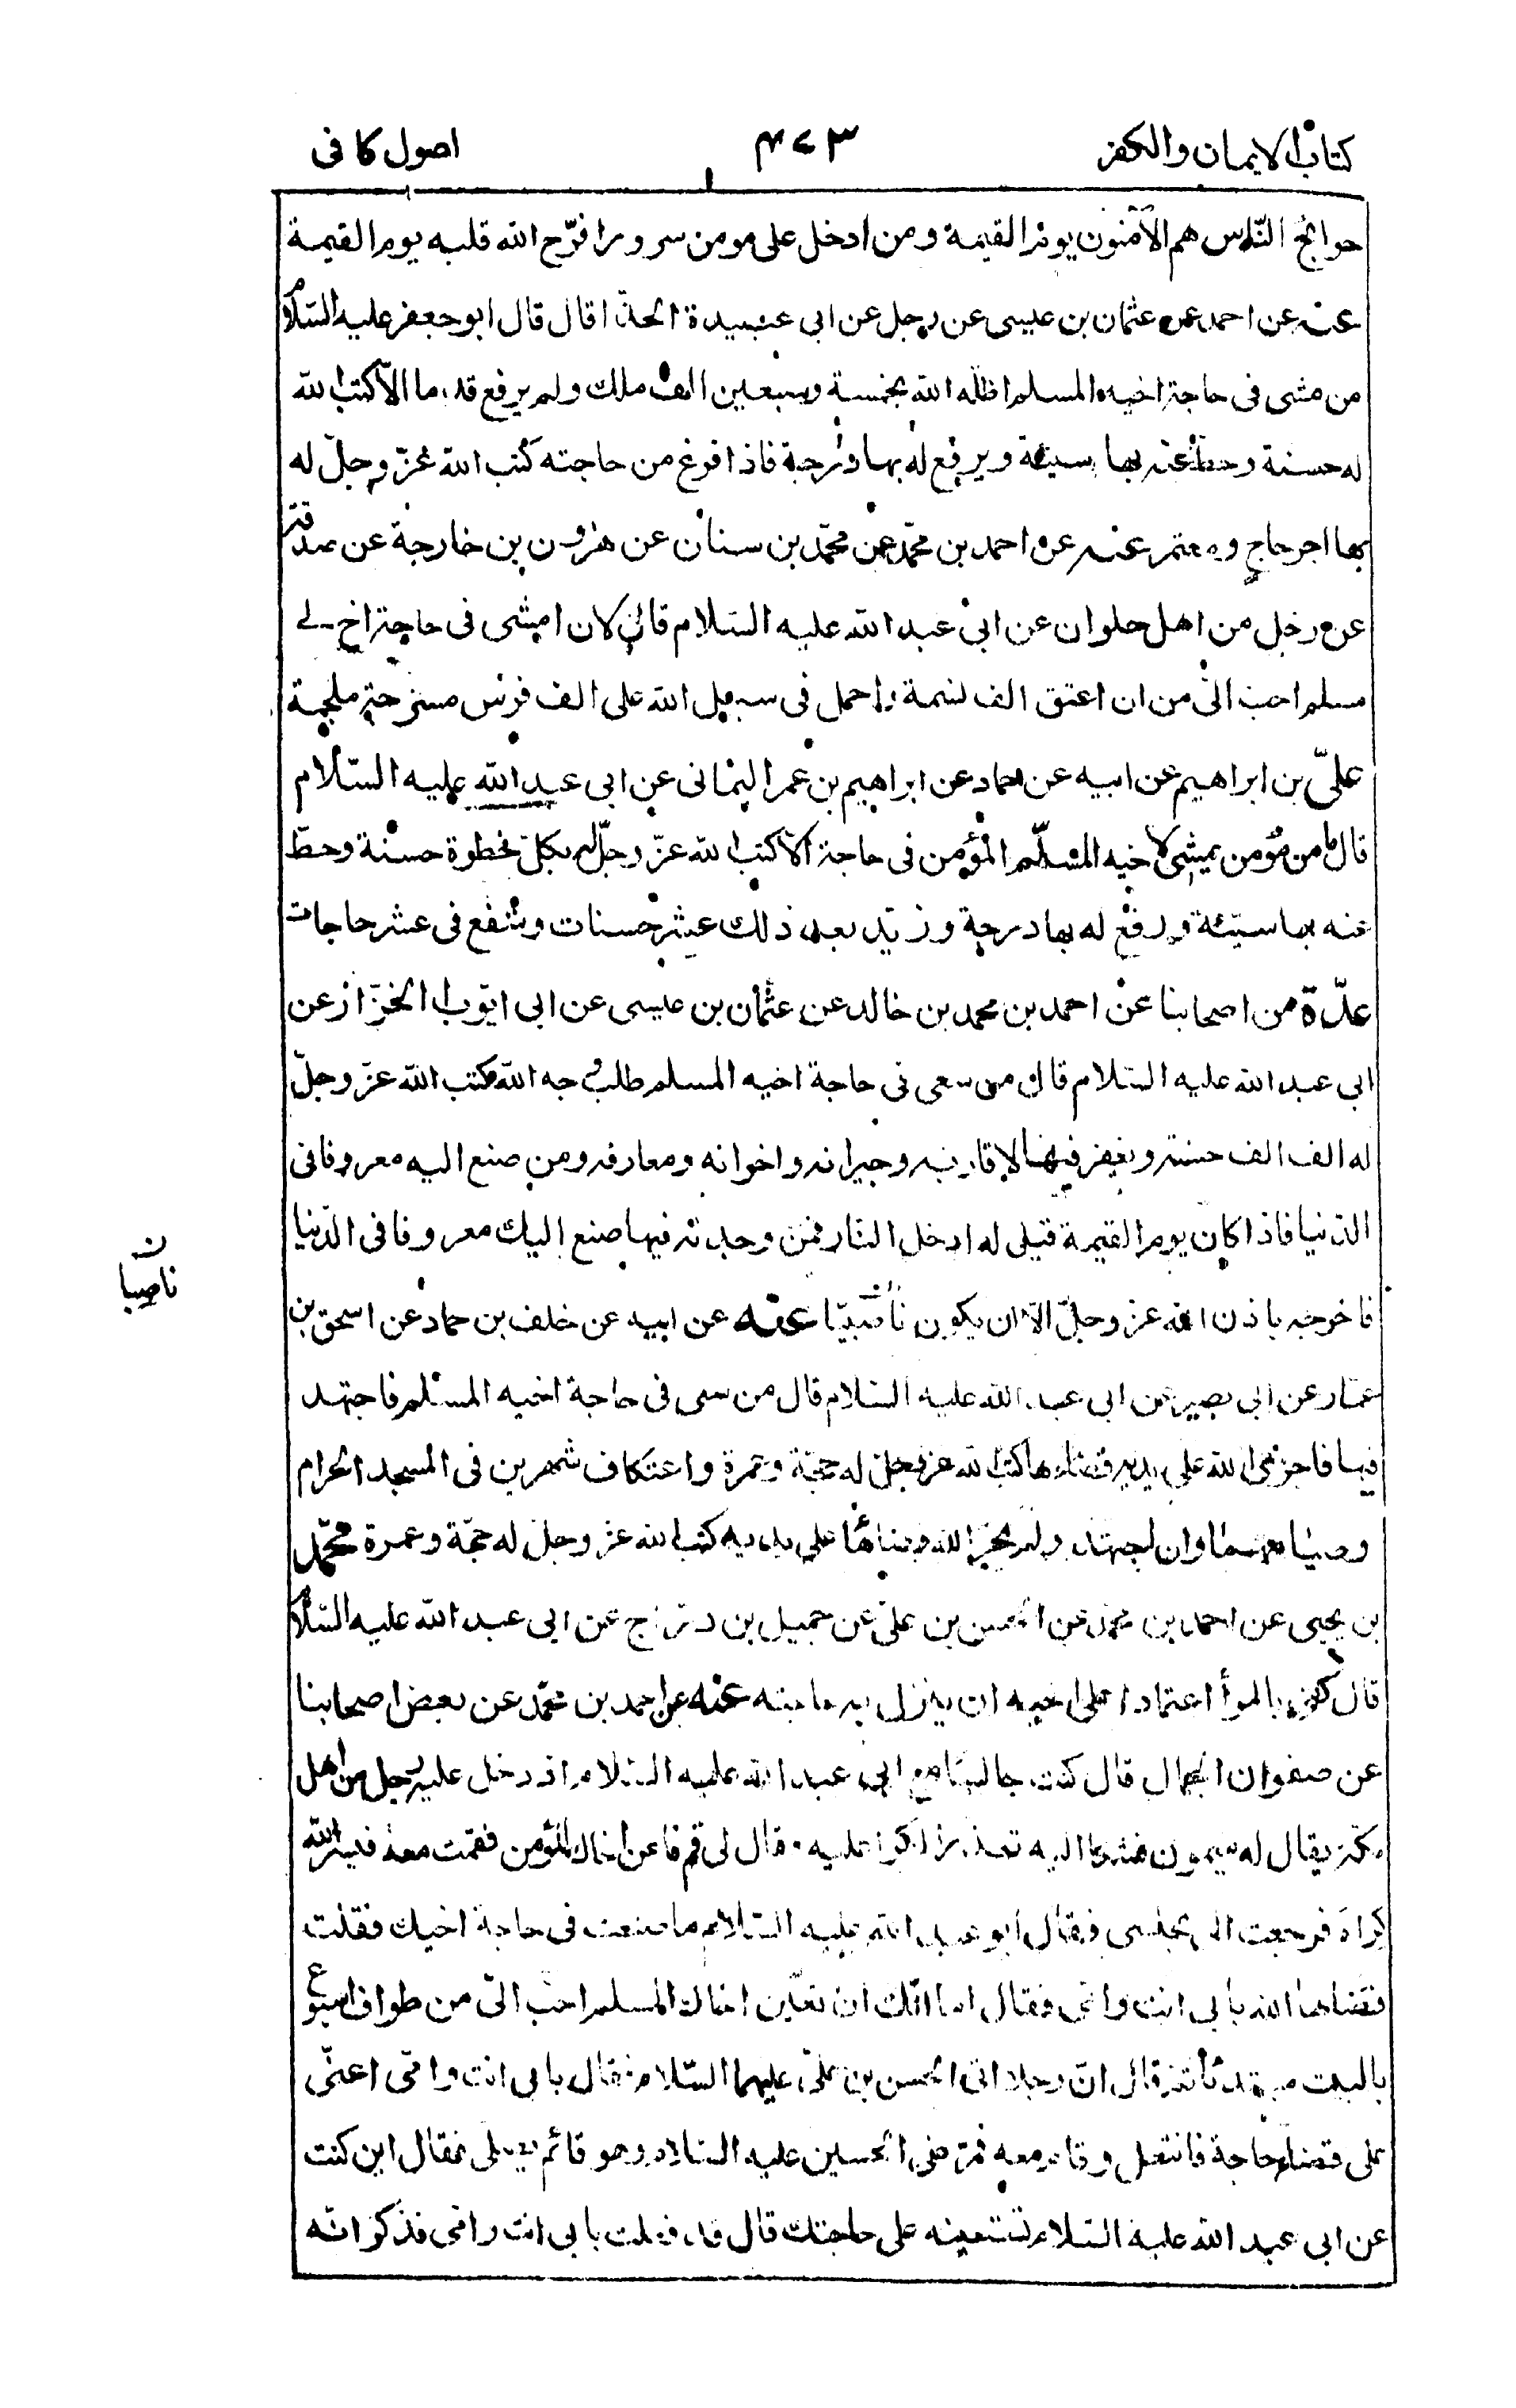 كتاب الايمان والكفر
٤٧٣
اصول كافى
حوائج النّاس هم الآمنون يوم القيمة ومن ادخل على مومن سرورا فرّح الله قلبه يوم القيمة
عنه عن احمد عن عثمان بن عيسى عن رجل عن ابى عبيدة الحذّا قال قال ابو جعفر عليه السّلام
من مشى فى حاجة اخيه المسلم اظلّه الله بخمسة وسبعين الف ملك ولم يرفع قدما الّا كتب الله
له حسنة وحطّ عنه بها سيئة ويرفع له بها درجة فاذا فرغ من حاجته كتب الله عزّ وجلّ له
بها اجر حاج ومعتمر عنه عن احمد بن محمّد عن محمّد بن سنان عن هرون بن خارجة عن صدقة
عن رجل من اهل حلوان عن ابى عبد الله عليه السّلام قال لان امشى فى حاجة اخ لے
مسلم احبّ الىّ من ان اعتق الف نسمة واحمل فى سبيل الله على الف فرس مسرجة ملجمة
علىّ بن ابراهيم عن ابيه عن حماد عن ابراهيم بن عمر اليمانى عن ابى عبد الله عليه السّلام
قال ما من مؤمن يمشى لاخيه المسلّم المؤمن فى حاجة الّا كتب الله عزّ وجلّ له بكلّ خطوة حسنة وحطّ
عنه بها سيّئة ورفع له بها درجة وزيد بعد ذلك عشر حسنات وشفع فى عشر حاجات
عدّة من اصحابنا عن احمد بن محمد بن خالد عن عثمان بن عيسى عن ابى ايّوب الخزّاز عن
ابى عبد الله عليه السّلام قال من سعى فى حاجة اخيه المسلم طلب وجه الله كتب الله عزّ وجلّ
له الف الف حسنة ويغفر فيها لاقاربه وجيرانه واخوانه ومعارفه ومن صنع اليه معروفا فى
الدّنيا فاذا كان يوم القيمة قيل له ادخل النّار فمن وجدته فيها صنع اليك معروفا فى الدّنيا
فاخرجه باذن الله عز وجلّ الّا ان يكون ناصبيّا عنه عن ابيه عن خلف بن حماد عن اسحق بن
ن
ناصبا
عمّار عن ابى بصير عن ابى عبد الله عليه السّلام قال من سعى فى حاجة اخيه المسلم فاجتهد
فيها فاجرى الله على يديه قضاءها كتب الله عز وجلّ له حجّة وعمرة واعتكاف شهرين فى المسجد الحرام
وصيامهما وان اجتهد ولم يجر الله قضاءها على يديه كتب الله عز وجلّ له حجّة وعمرة محمّد
بن يحيى عن احمد بن محمد عن الحسن بن علىّ عن جميل بن درّاج عن ابى عبد الله عليه السّلام
قال كفى بالمرأ اعتمادا على اخيه ان ينزل به حاجته عنه عن احمد بن محمّد عن بعض اصحابنا
عن صفوان الجمال قال كنت جالسا مع ابى عبد الله عليه السّلام اذ دخل عليه رجل من اهل
مكّة يقال له ميمون فشكا اليه تعذر الكرا عليه فقال لى قم فاعن اخاك المؤمن فقمت معه فيسّر الله
كراه فرجعت الى مجلسى فقال ابو عبد الله عليه السّلام ما صنعت فى حاجة اخيك فقلت
فقضاها الله بابى انت وامّى فقال اما انّك ان تعين اخاك المسلم احبّ الىّ من طواف اسبوع
بالبيت مبتدئا ثم قال انّ رجلا اتى الحسن بن علىّ عليهما السّلام فقال بابى انت وامّى اعنّى
على قضاء حاجة فانتعل وقام معه فمرّ على الحسين عليه السّلام وهو قائم يصلى فقال اين كنت
عن ابى عبد الله عليه السّلام تستعينه على حاجتك قال قد فعلت بابى انت وامّى فذكر انّه